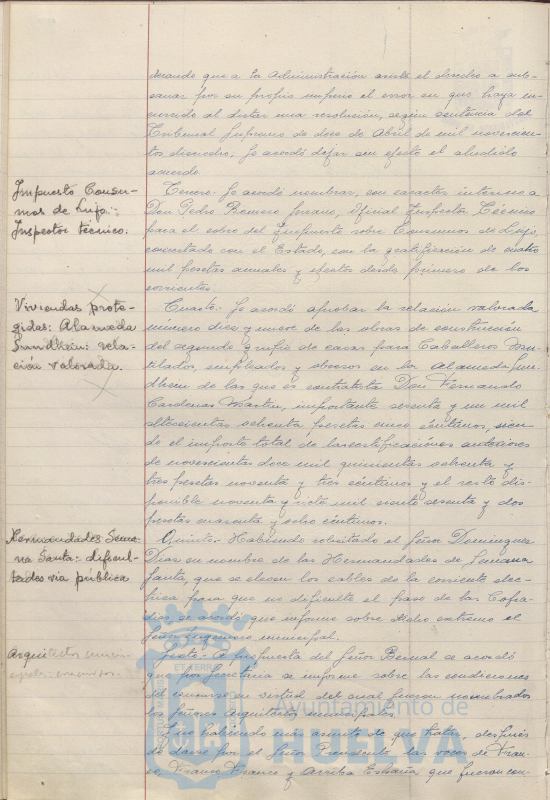 derando que a la Administración asiste el derecho a sub-
sanar por su propio imperio el error en que haya in-
currido al dictar una resolución, según sentencia del
Tribunal Supremo de doce de Abril de mil novecien-
tos dieciocho, se acordó dejar sin efecto el aludido
acuerdo.
Impuesto Consu-
mos de Lujo:
Inspector técnico.
Tercero: Se acordó nombrar, con carácter interino a
Don Pedro Romero, Oficial Inspector Técnico
para el cobro del Impuesto sobre Consumos de Lujo,
concertado con el Estado, con la gratificación de cuatro
mil pesetas anuales y efectos desde primero de los
corrientes.
Viviendas prote-
gidas: Alameda
Sundheim: rela-
ción valorada.
Cuarto. Se acordó aprobar la relación valorada
número diez y nueve de las obras de construcción
del segundo grupo de casas para Caballeros Mu-
tilados, empleados y obreros en la Alameda Sun-
dheim de las que es contratista Don Fernando
Cardenas Martin, importante sesenta y un mil
ochocientas ochenta pesetas cinco céntimos, sien-
do el importe total de las certificaciones anteriores
de novecientas doce mil quinientas ochenta y
tres pesetas noventa y tres céntimos y el resto dis-
ponible noventa y siete mil ciento sesenta y dos
pesetas cuarenta y ocho céntimos.
Hermandades Sema-
na Santa: dificul-
tades via pública
Quinto. Habiendo solicitado el Señor Dominguez
Dias en nombre de las Hermandades de Semana
Santa, que se eleven los cables de la corriente elec-
trica para que no dificulte el paso de las Cofra-
dias, se acordó que informe sobre dicho extremo el
Señor Ingeniero municipal.
Arquitectos
Sexto. A propuesta del Señor Bernal se acordó
que por Secretaría se informe sobre las condiciones
del concurso en virtud del cual fueron nombrados
los Señores Arquitectos municipales.
Y no habiendo más asuntos de que tratar, después
de darse por el Señor Presidente las voces de Fran-
co, Franco, Franco y Arriba España, que fueron con-
Ayuntamiento de
HUELVA